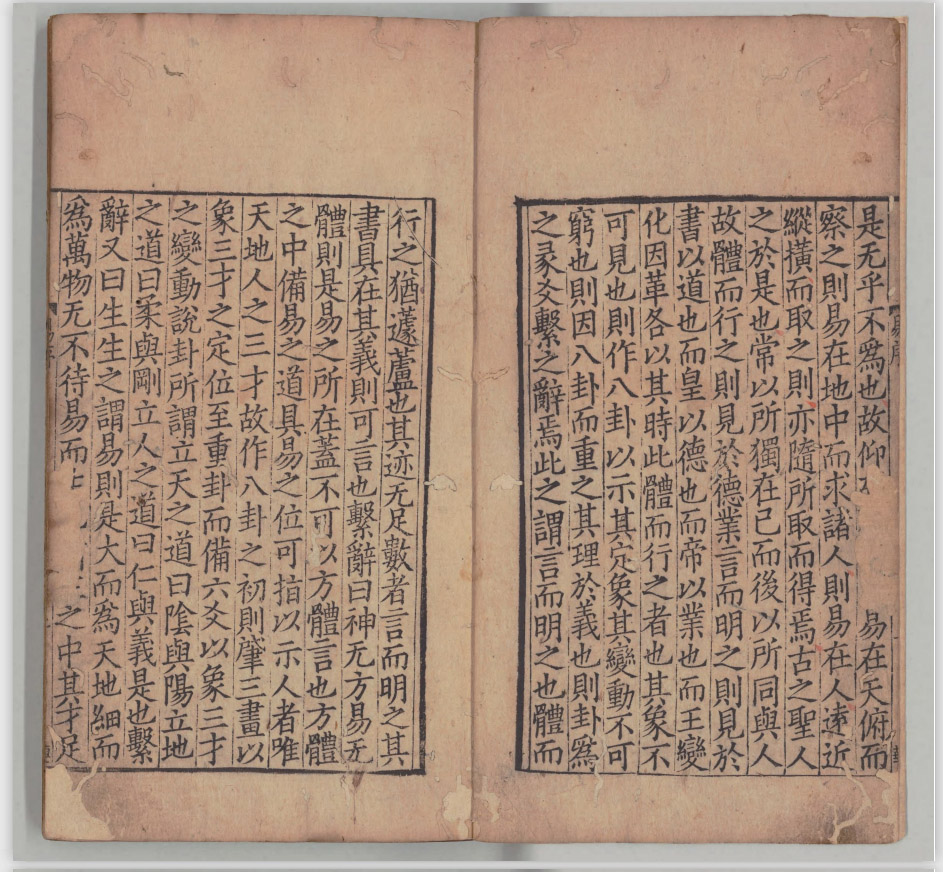 是无乎不為也故仰 易在天俯而
察之則易在地中而求諸人則易在人遠近
縱橫而取之則亦隨所取而得焉古之聖人
之於是也常以所獨在已而後以所同與人
故體而行之則見於德業言而明之則見於
書以道也而皇以德也而帝以業也而王變
化因革各以其時此體而行之者也其象不
可見也則作八卦以示其定象其變動不可
窮也則因八卦而重之其理於義也則卦為
之彖爻繫之辭焉此之謂言而明之也體而
行之猶蘧蘆也其迹无足數者言而明之其
書具在其義則可言也繫辭曰神无方易无
體則是易之所在蓋不可以方體言也方體
之中備易之道具易之位可指以示人者唯
天地人之三才故作八卦之初則肇三畫以
象三才之定位至重卦而備六爻以象三才
之變動說卦所謂立天之道曰陰與陽立地
之道曰柔與剛立人之道曰仁與義是也繫
辭又曰生生之謂易則是大而為天地細而
為萬物无不待易而 之中其才足